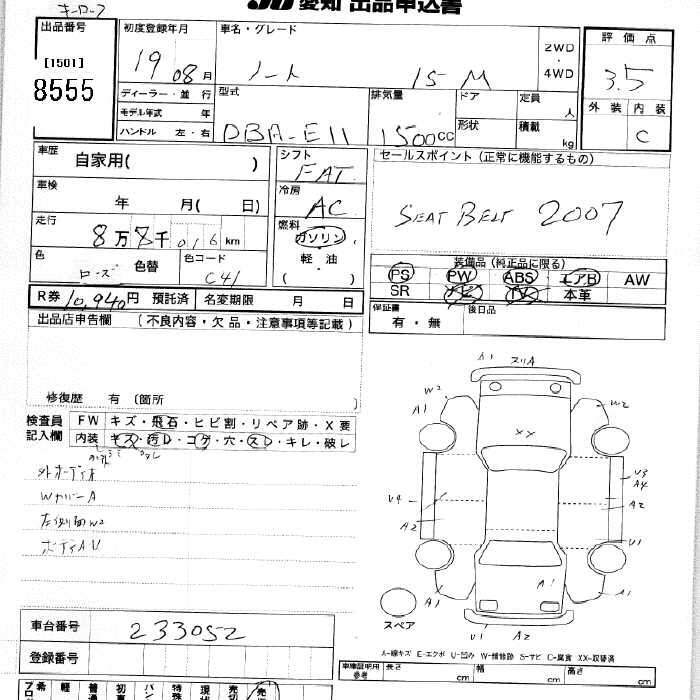 キーロープ
JU 愛知 出品申込書
出品番号
[1501]
8555
初度登録年月
19 08月
ディーラー・並行
モデル年式 年
ハンドル 左・右
車名・グレード
ノート 15 M
2WD
・
4WD
型式
DBA-E11
排気量
1500cc
ドア
形状
定員 人
積載 kg
評価点
3.5
外装 内装
C
車歴
自家用( )
車検
年 月( 日)
走行
8万8千016km
色
ローズ 色替
色コード
C41
シフト
FAT
冷房
AC
燃料
ガソリン
軽・油
( )
セールスポイント(正常に機能するもの)
SEAT BELT 2007
装備品(純正品に限る)
PS PW ABS エアB AW
SR ナビ TV 本革
R券 10,940円 預託済 名変期限 月 日
保証書
有・無
後日品
出品店申告欄 (不良内容・欠品・注意事項等記載)
修復歴 有 〔箇所
検査員
記入欄
FW キズ・飛石・ヒビ割・リペア跡・X要
内装 キズ・汚レ・コゲ・穴・スレ・キレ・破レ
外オーディオ
WカバーA
左側面W2
ボディAU
A1 スリA
W2
A1
W2
XX
U3
A4
U4
A2
A2
U1
A1
A1
A1
U1 A2
スペア
A-線キズ E-エクボ U-凹み W-補修跡 S-サビ C-腐食 XX-取替済
車台番号
233052
登録番号
車庫証明用
参考
長さ cm
幅 cm
高さ cm
希 軽 普通 初 バン 特殊 現状 売切 売